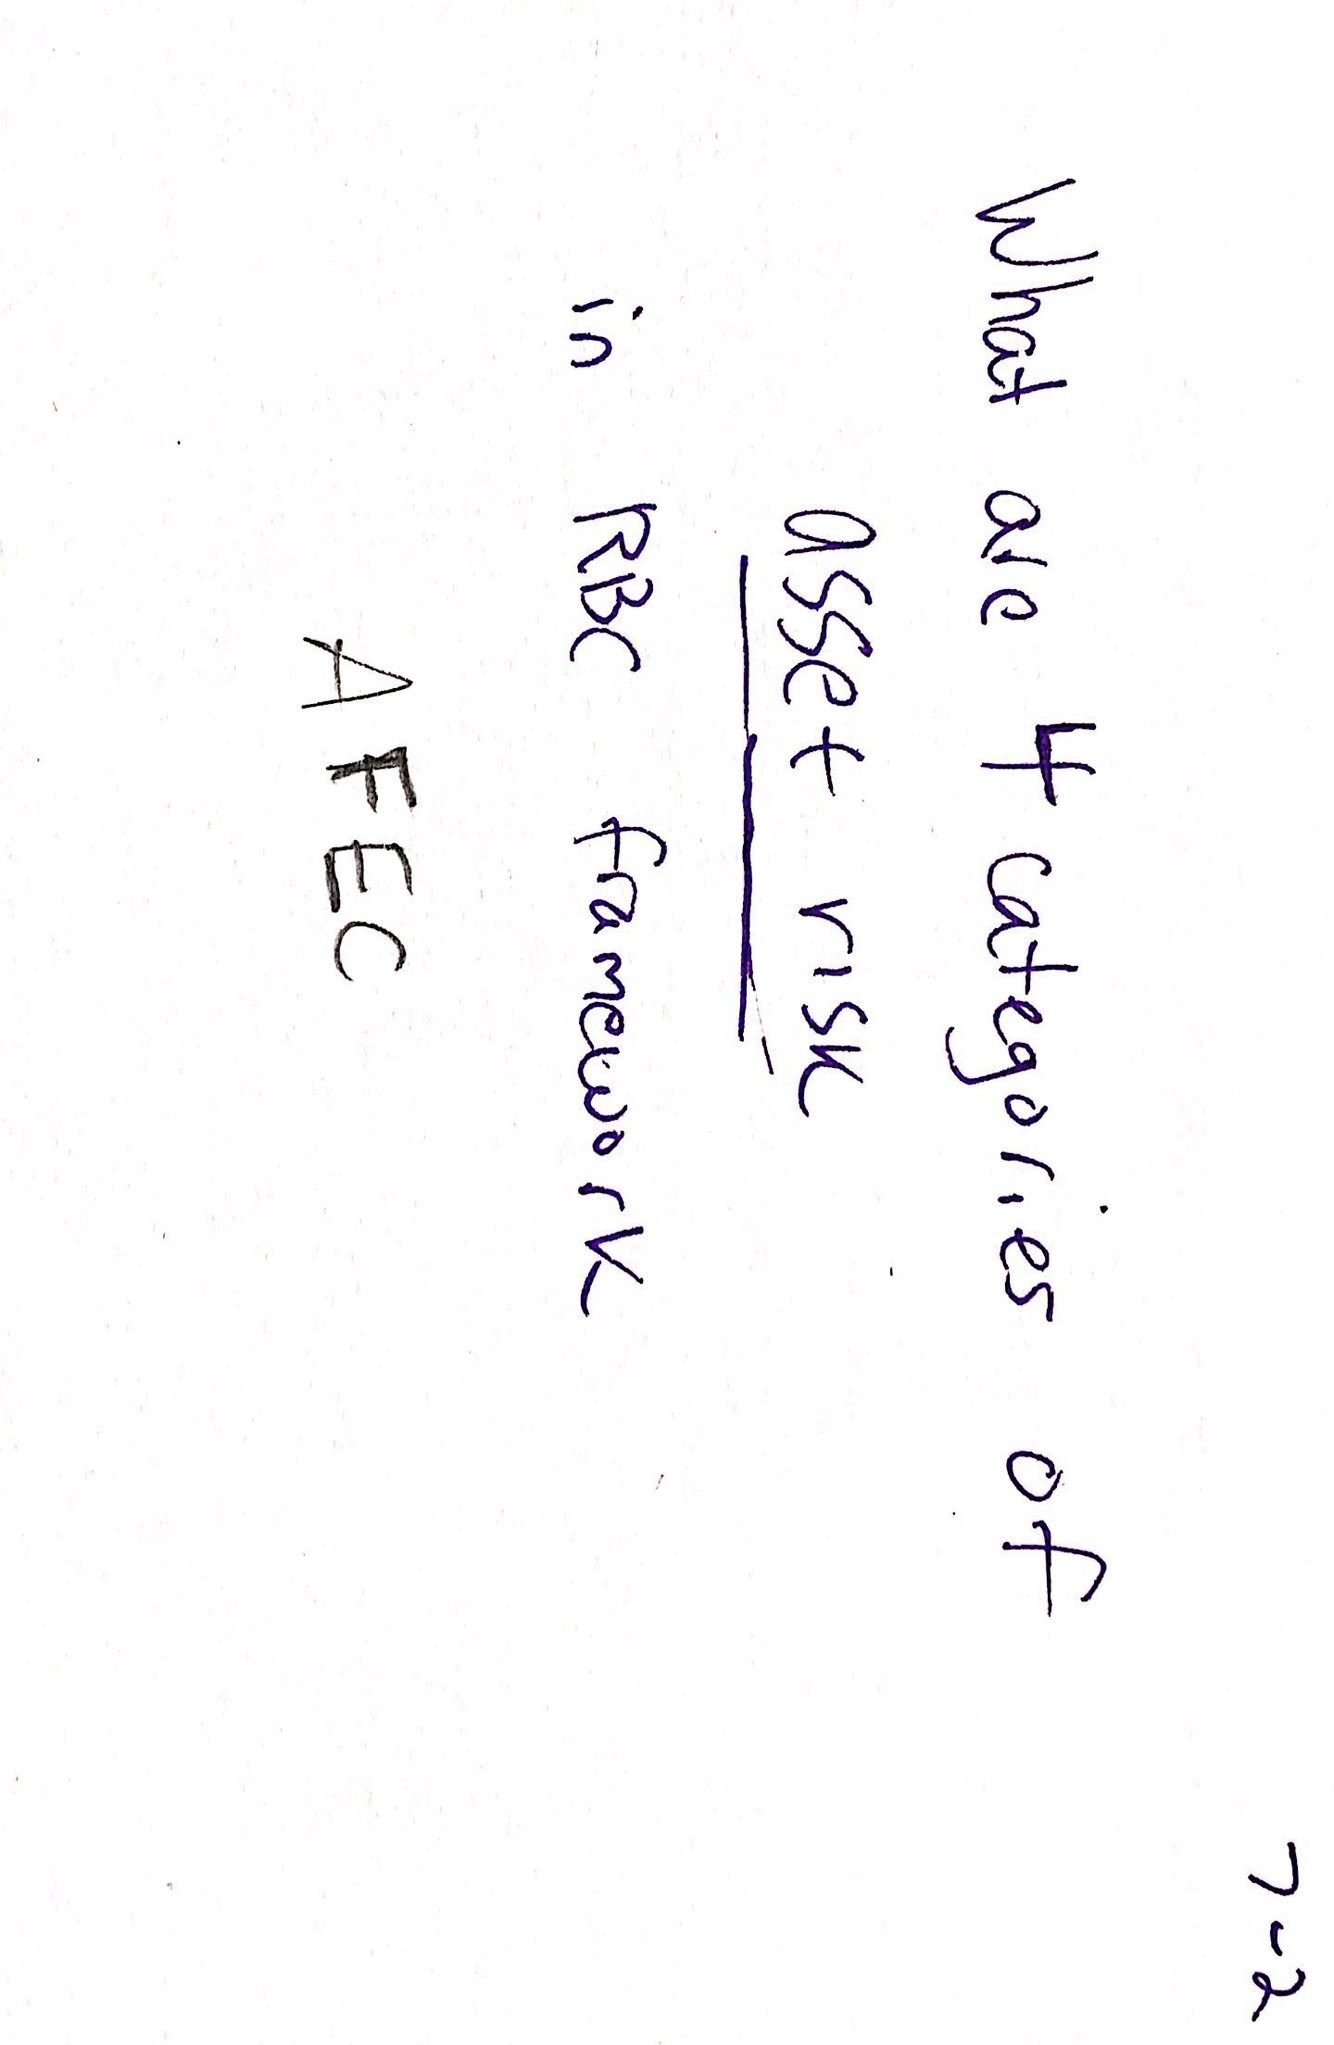 7-2
What are 4 categories of
asset risk
in RBC framework
AFEC